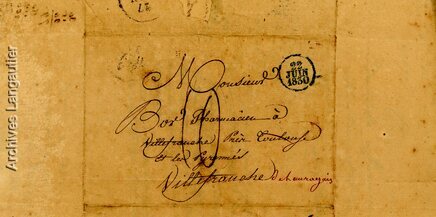 22
JUIN
1830
Monsieur
Bor Pharmacien à
Villefranche Près Toulouse
et les Pyrénées
Villefranche De Lauragais
Archives Langautier